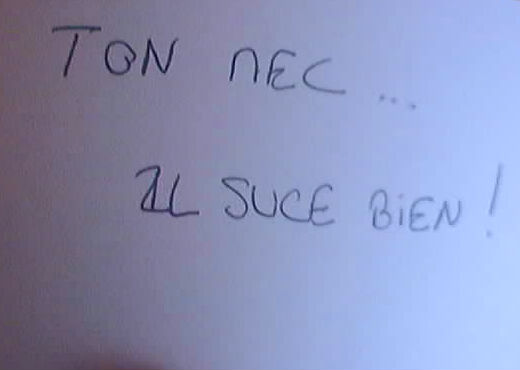 TON MEC...
IL SUCE BIEN!